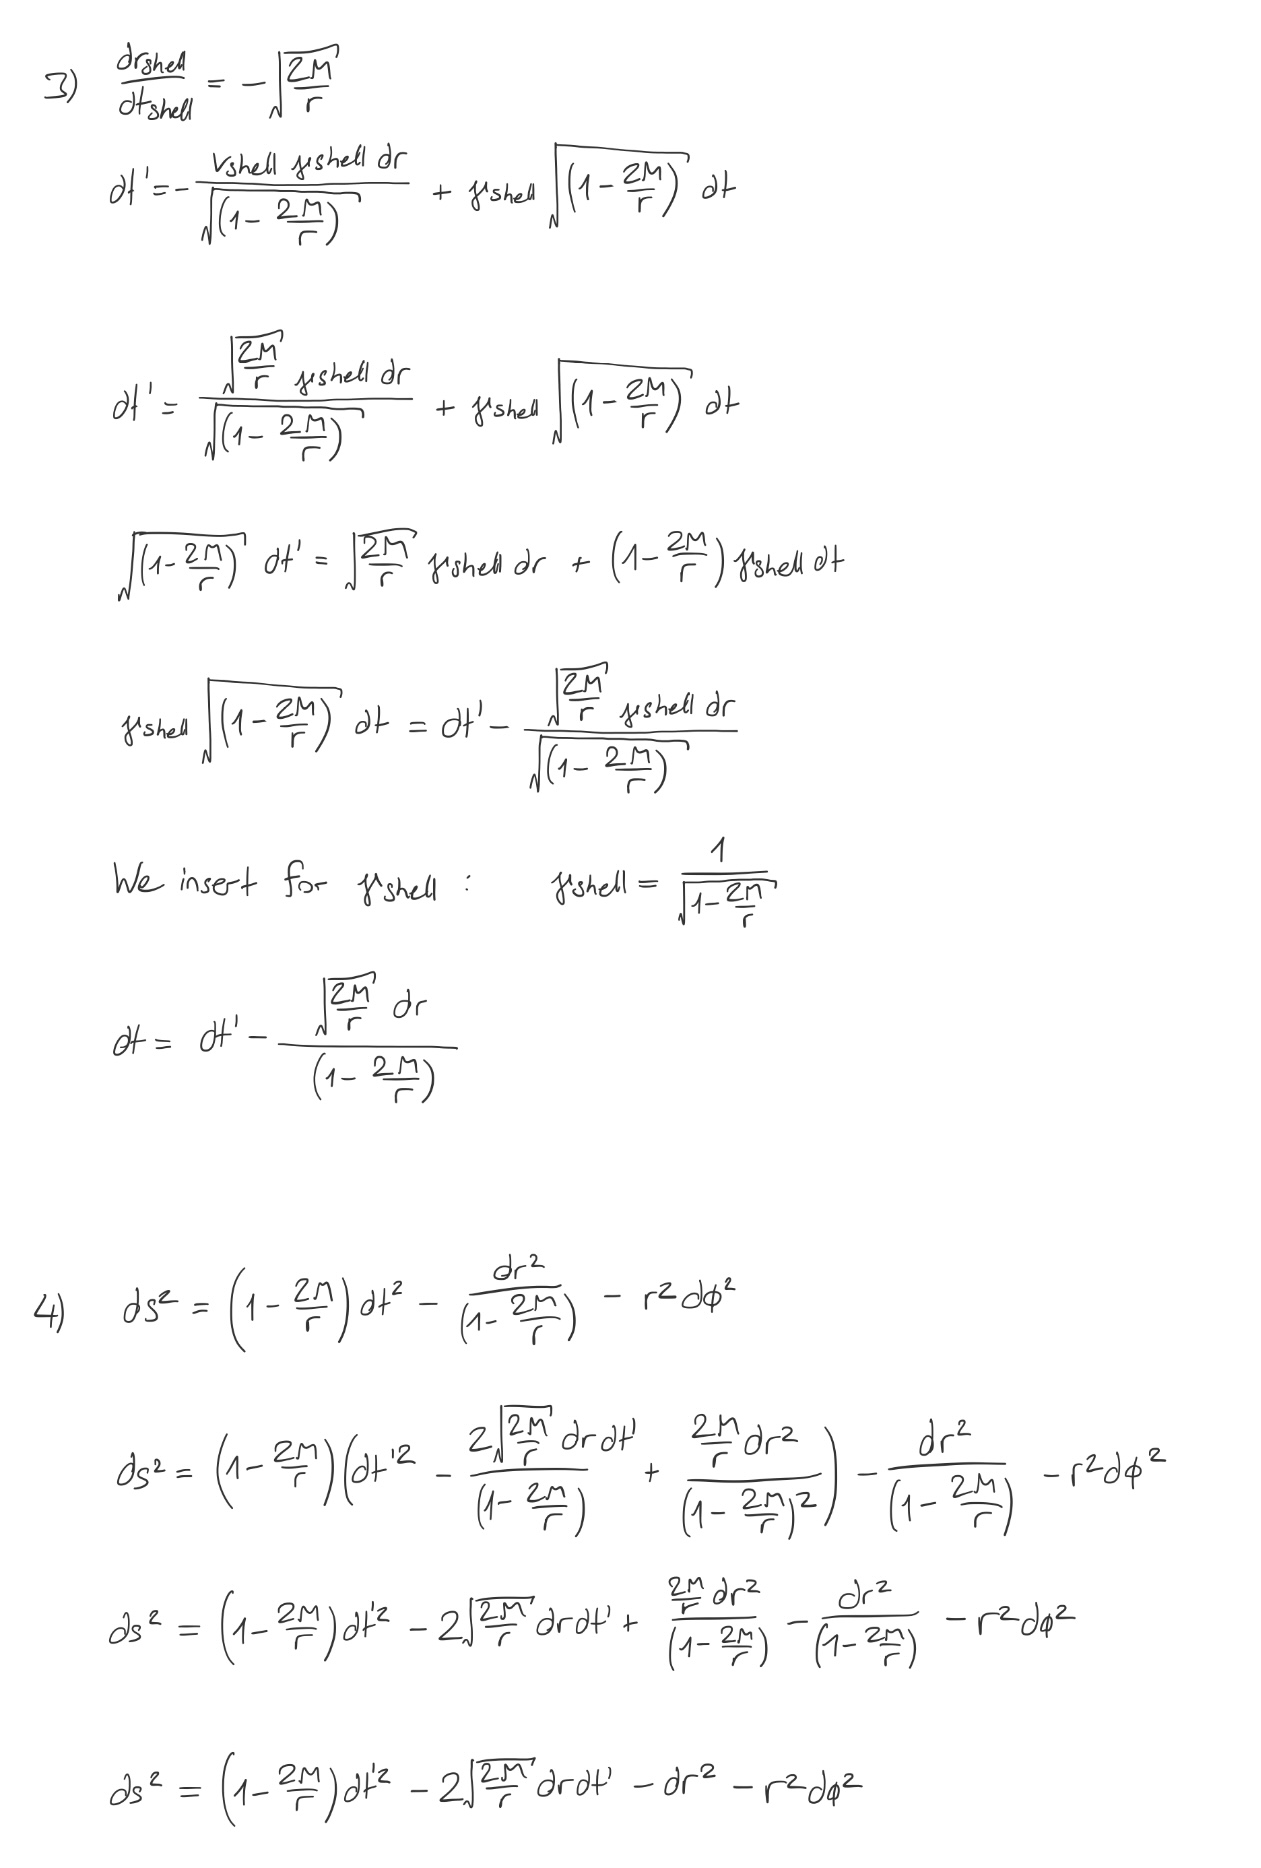 3) \frac{dr_{shell}}{dt_{shell}} = -\sqrt{\frac{2M}{r}}
dt' = -\frac{v_{shell} γ_{shell} dr}{\sqrt{(1-\frac{2M}{r})}} + γ_{shell} \sqrt{(1-\frac{2M}{r})} dt
dt' = \frac{\sqrt{\frac{2M}{r}} γ_{shell} dr}{\sqrt{(1-\frac{2M}{r})}} + γ_{shell} \sqrt{(1-\frac{2M}{r})} dt
\sqrt{(1-\frac{2M}{r})} dt' = \sqrt{\frac{2M}{r}} γ_{shell} dr + (1-\frac{2M}{r}) γ_{shell} dt
γ_{shell} \sqrt{(1-\frac{2M}{r})} dt = dt' - \frac{\sqrt{\frac{2M}{r}} γ_{shell} dr}{\sqrt{(1-\frac{2M}{r})}}
We insert for γ_{shell} : γ_{shell} = \frac{1}{\sqrt{1-\frac{2M}{r}}}
dt = dt' - \frac{\sqrt{\frac{2M}{r}} dr}{(1-\frac{2M}{r})}
4) ds² = (1-\frac{2M}{r}) dt² - \frac{dr²}{(1-\frac{2M}{r})} - r²dϕ²
ds² = (1-\frac{2M}{r}) (dt'² - \frac{2\sqrt{\frac{2M}{r}} dr dt'}{(1-\frac{2M}{r})} + \frac{\frac{2M}{r} dr²}{(1-\frac{2M}{r})²}) - \frac{dr²}{(1-\frac{2M}{r})} - r²dϕ²
ds² = (1-\frac{2M}{r}) dt'² - 2\sqrt{\frac{2M}{r}} dr dt' + \frac{\frac{2M}{r} dr²}{(1-\frac{2M}{r})} - \frac{dr²}{(1-\frac{2M}{r})} - r²dϕ²
ds² = (1-\frac{2M}{r}) dt'² - 2\sqrt{\frac{2M}{r}} dr dt' - dr² - r²dϕ²